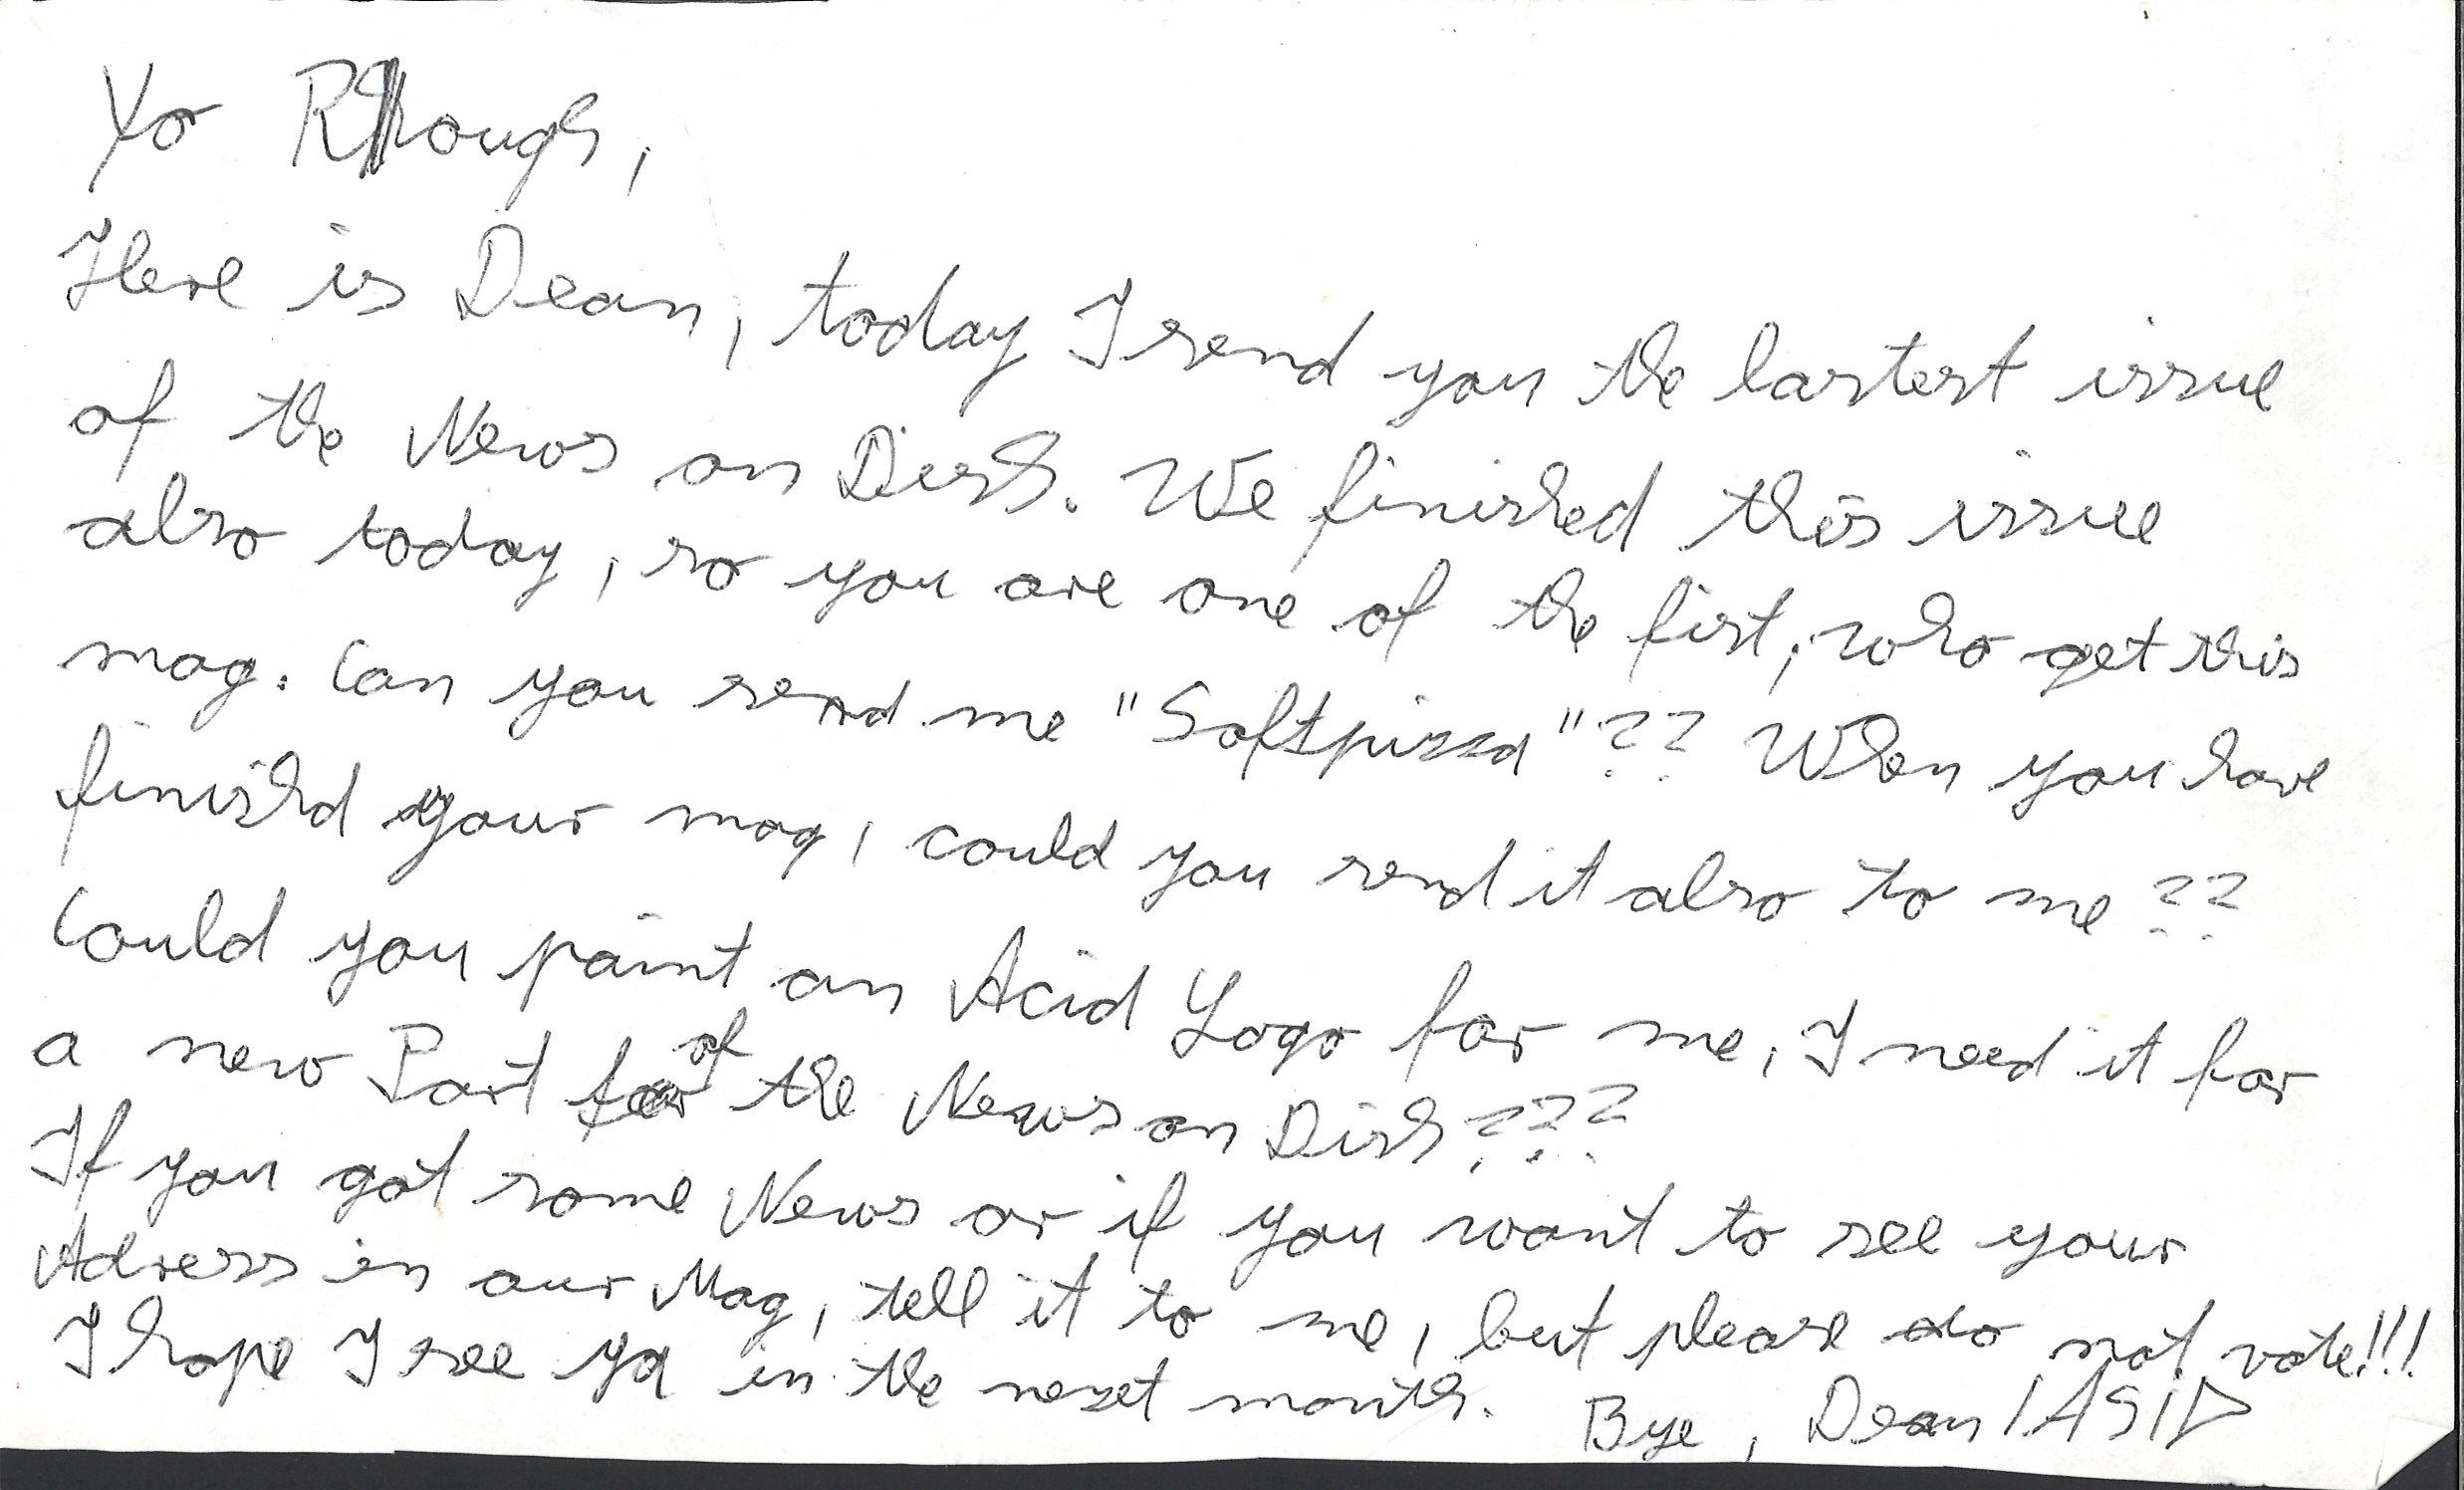 Yo Rhough,
Here is Dean, today I send you the lastest issue
of the News on Disk. We finished this issue
also today, so you are one of the first, who get this
mag. Can you send me "Softpizza"?? When you have
finishd your mag, could you send it also to me??
Could you paint an Acid Logo for me, I need it for
a new Part of the News on Disk???
If you got some News or if you want to see your
Adress in our Mag, tell it to me, but please do not vote!!!
I hope I see ya in the next month. Bye, Dean / ASID